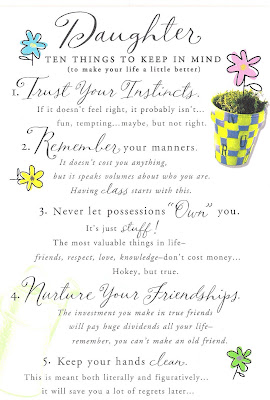 Daughter
TEN THINGS TO KEEP IN MIND
(to make your life a little better)
1. Trust Your Instincts.
If it doesn't feel right, it probably isn't...
fun, tempting...maybe, but not right.
2. Remember your manners.
It doesn't cost you anything,
but it speaks volumes about who you are.
Having class starts with this.
3. Never let possessions "Own" you.
It's just stuff!
The most valuable things in life–
friends, respect, love, knowledge–don't cost money...
Hokey, but true.
4. Nurture Your Friendships.
The investment you make in true friends
will pay huge dividends all your life–
remember, you can't make an old friend.
5. Keep your hands clean.
This is meant both literally and figuratively...
it will save you a lot of regrets later...